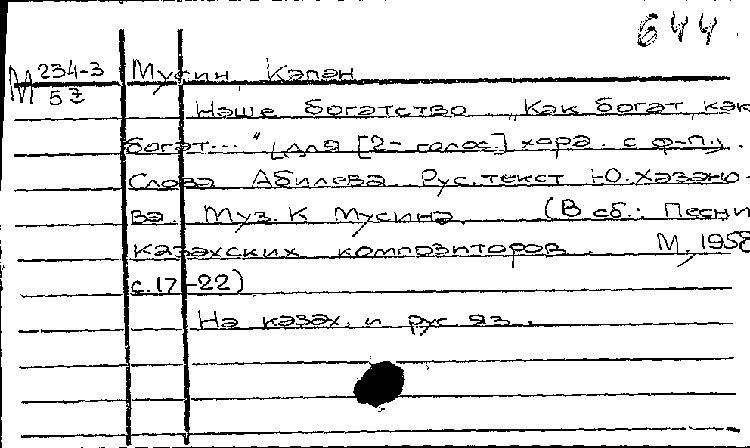 644
М 234-3 Мусин, Капан
57 Наше богатство „Как богат, как
богат..." [Для [2-голос.] хора с ф-п.].
Слова Абилева. Рус. текст Ю. Хазано-
ва. Муз. К Мусина. (В сб.: Песни
казахских композиторов. М., 1958
с. 17-22)
На казах. и рус яз.